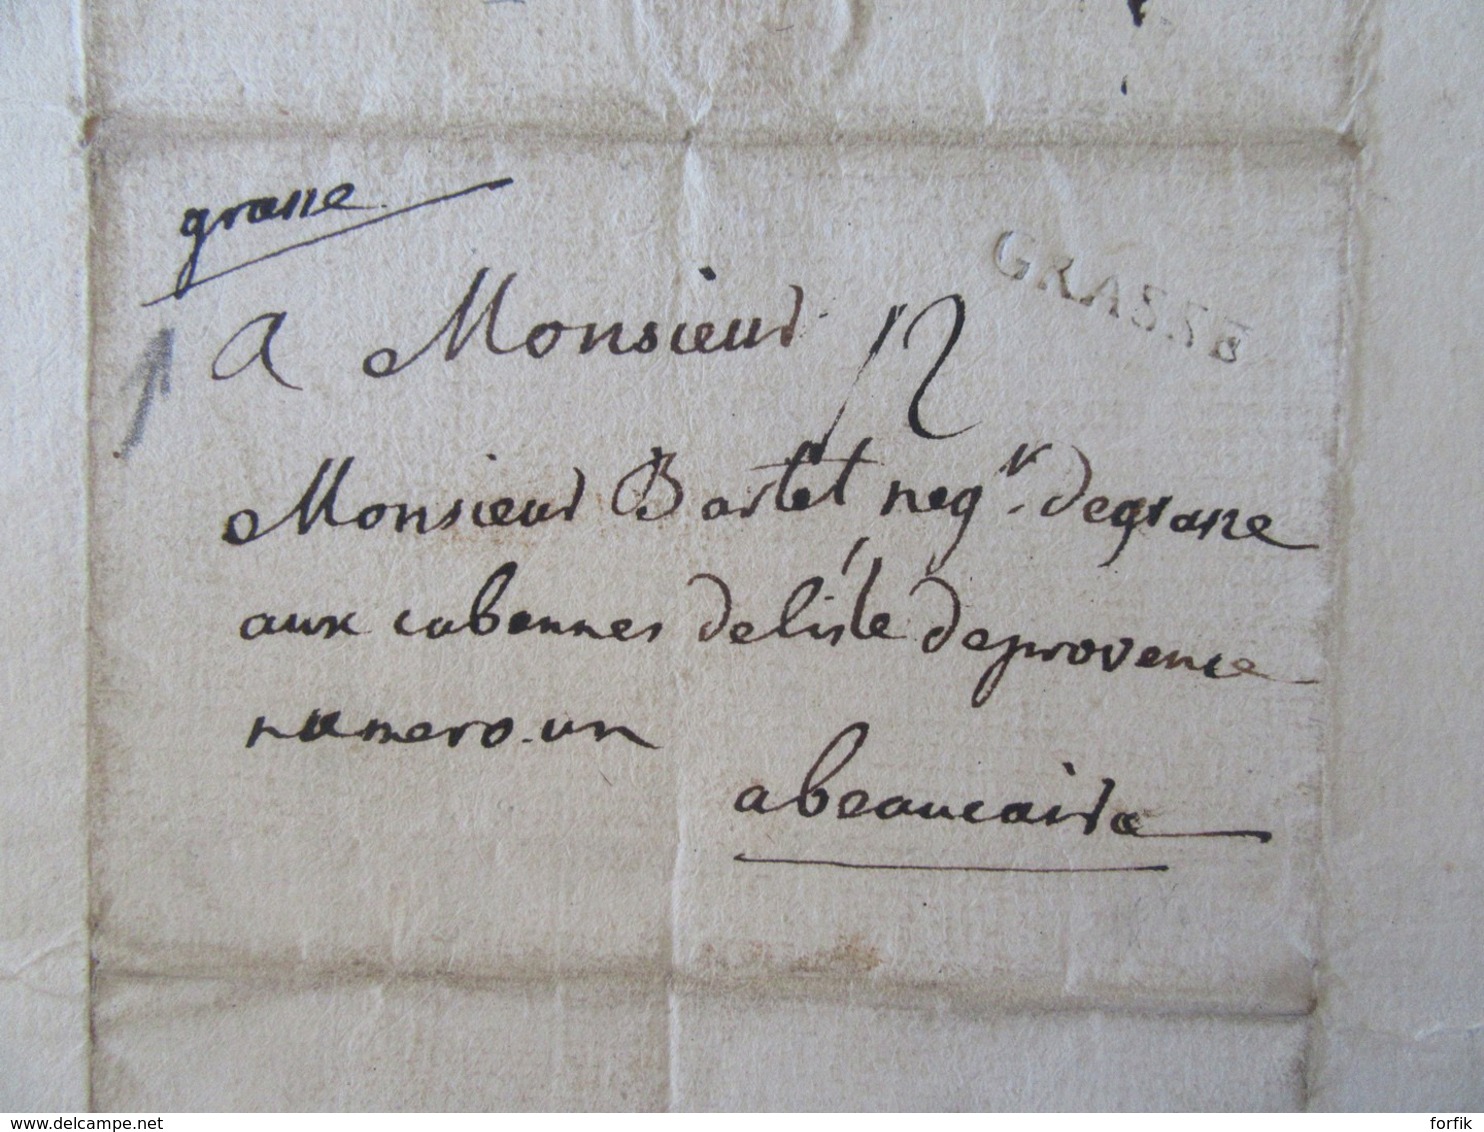 grasse
GRASSE
A Monsieur
12
Monsieur Bartet negr. degrasse
aux cabannes delisle deprovence
numero un
abeaucaire
www.delcampe.net
forfik